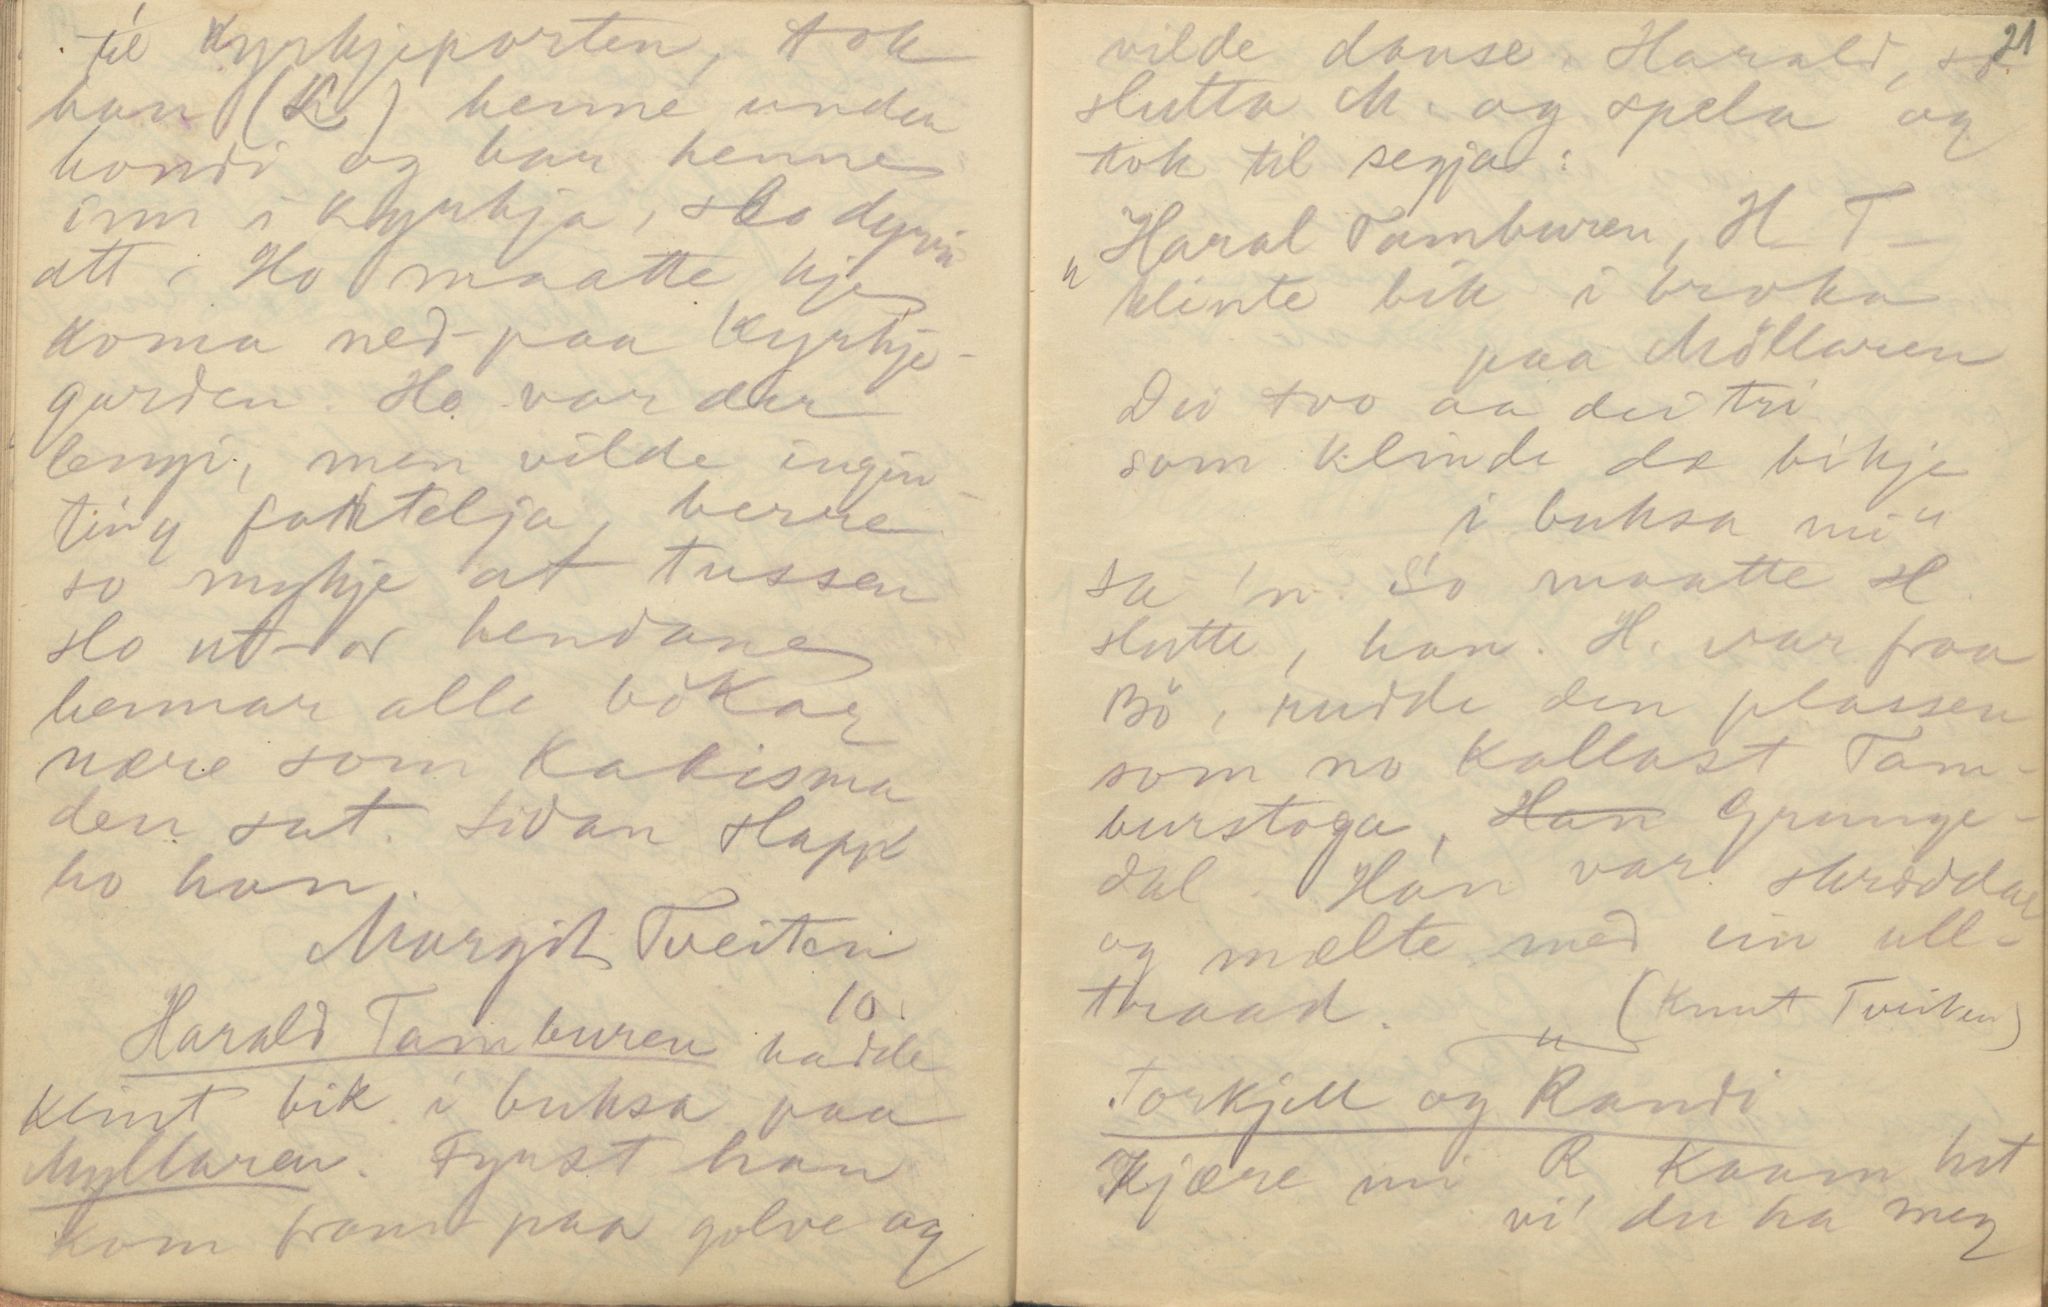 til Kyrkjeporten, tok
han (K) henne under
hondi og bar henne
inn i Kyrkja, slo dynni
att. Ho maatte kje
koma ned paa Kyrkje-
garden. Ho var der
lengi, men vilde ingin-
ting fortelja, berre
so mykje at tussen
slo ut or hendane
hennar alle bökar
nære som
den sat. Sidan slapp
ho han.
Margit Tveiten
10.
Harald Tamburen hadde
klint bik i buksa paa
Myllaren. Fyrst han
kom fram paa golve og
21
vilde danse, Harald, so
slutta M. og spela og
tok til segja:
"Haral Tamburen, H T
klinte bik i broka
paa Möllaren
Dei tvo aa dei tri
som klinde dæ bikje
i buksa mi"
sa 'n. So maatte H.
slutte, han. H. var fraa
Bö, rudde den plassen
som no kallast Tam-
burstoga, Han Grunge-
dal. Han var skrøddar
og mælte med ein ull-
traad. (Knut Tveiten)
"
Torkjell og Randi
Kjære mi R Kaam hit
vi' du ha meg